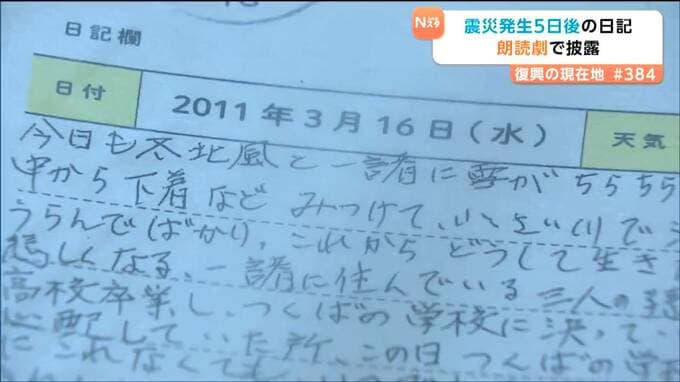 Nスタ
震災発生5日後の日記
朗読劇で披露
復興の現在地 #384
日記欄
日付 2011年3月16日(水) 天気
今日も冬北風と一諸に雪がちらちら
中から下着など みつけて、
うらんでばかり、これからどうして生き
悲しくなる、一諸に住んでいる三人の
高校卒業し、つくばの学校に決って、
心配していた所、この日つくばの学
にこれなくても